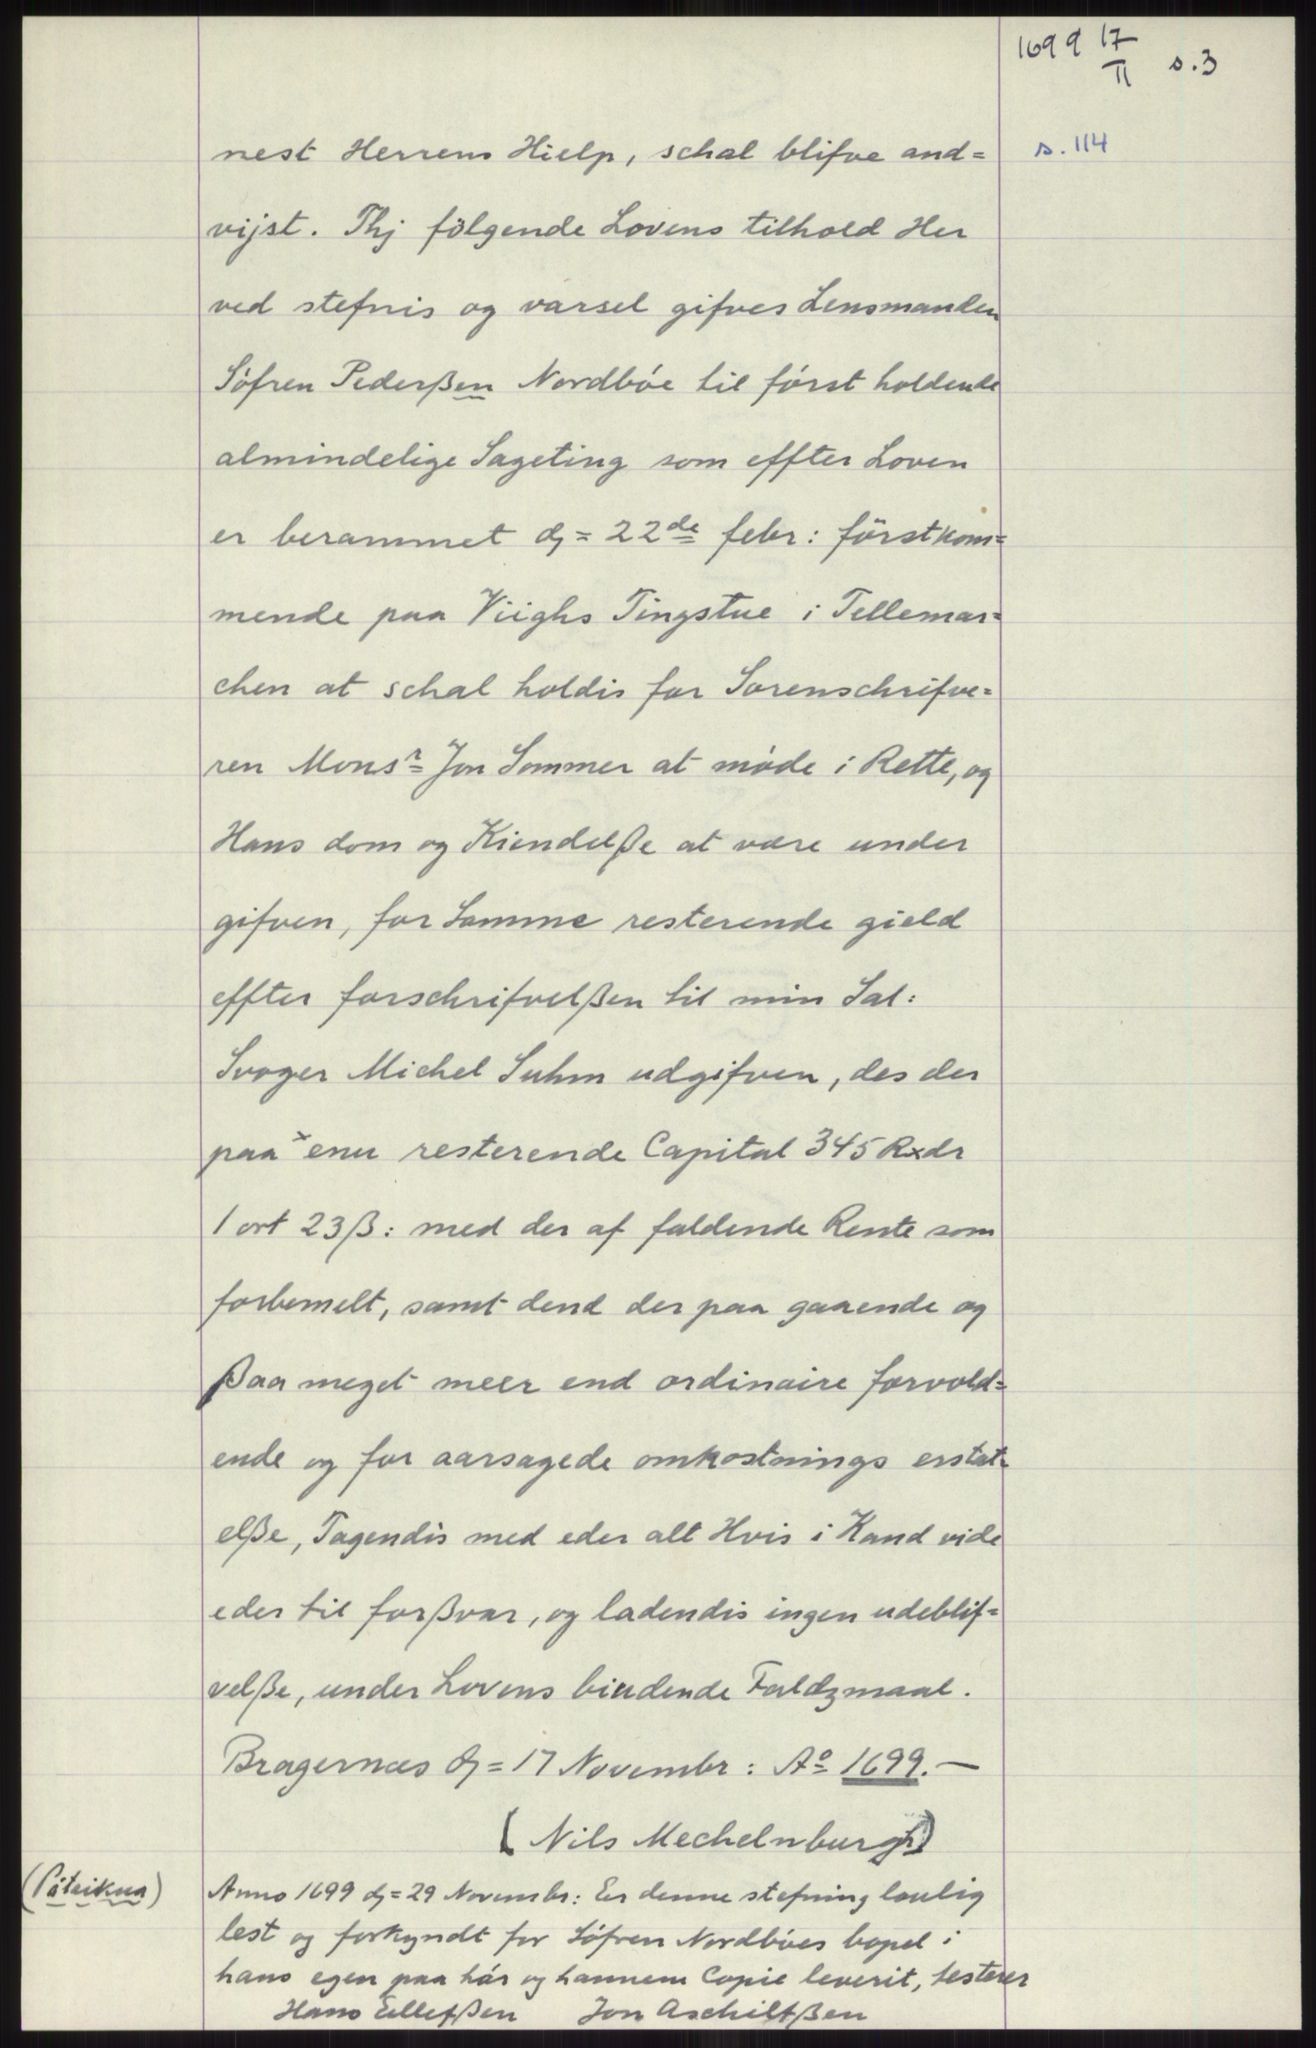 1699 17/11 s.3
s. 114
nest Herrens Hielp, schal blifve and=
vijst. Thj fölgende Lovens tilhold Her
ved stefnis og varsel gifves Lensmanden
Söfren Pederßen Nordbóe til fórst holdende
almindelige Sageting som effter Loven
er berammet dj= 22de febr: förstkom=
mende paa Viighs Tingstue i Tellemar=
chen at schal holdis for Sorenschrifve=
ren Monsr Jon Sommer at móde i Rette, og
Hans dom og Kiendelße at være under
gifven, for Samme resterende gield
effter forschrifvelßen til min Sal:
Svoger Michel Suhm udgifven, des der
paa x enu resterende Capital 345 Rxdr
1 ort 23 ß: med der af faldende Rente som
forbemelt, samt dend der paa gaaende og
ßaa meget meer end ordinaire forvold=
ende og for aarsagede omkostnings erstat=
elße, Tagendis med eder alt Hvis i Kand vide
eder til forßvar, og ladendis ingen udeblif=
velße, under Lovens bindende Faldzmaal.
Bragernæs dj= 17 Novembr: Ao 1699.—
(Nils Mechelnburgh)
(Påteikna)
Anno 1699 dj= 29 Novembr: Er denne stefning loulig
lest og forkyndt for Söfren Nordbóes bopel i
hans egen paa hór og hannem Copie leverit, testerer
Hans Ellefßen Jon Aschiltßen